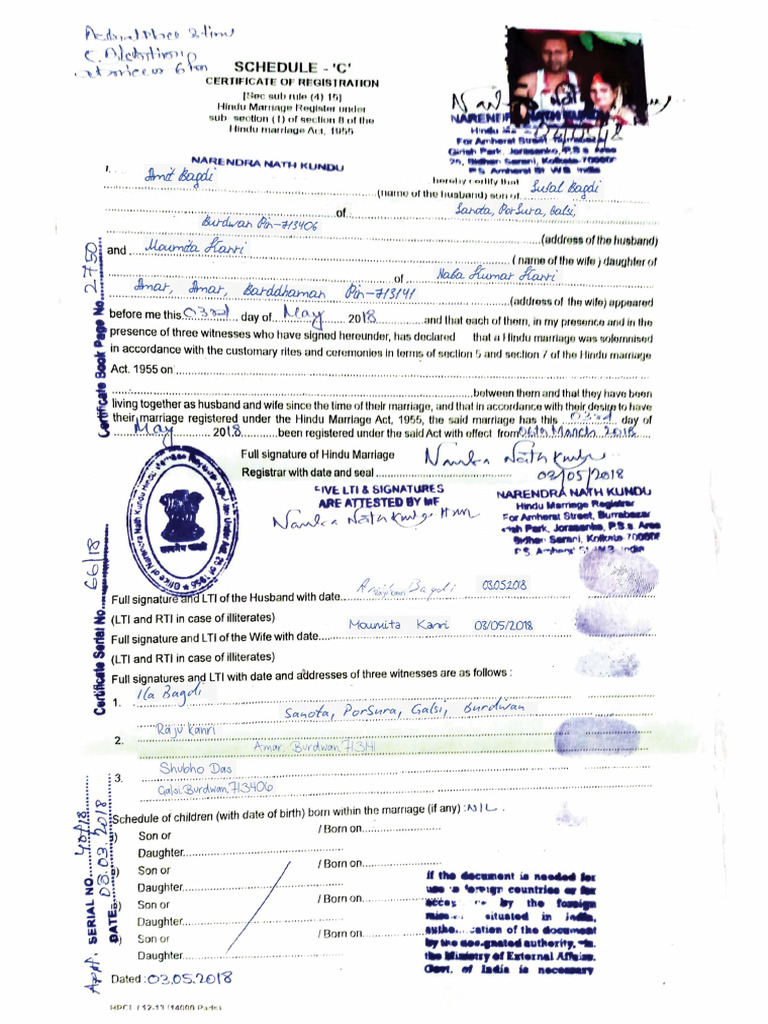 SCHEDULE - 'C'
CERTIFICATE OF REGISTRATION
[See sub rule (4) 15]
Hindu Marriage Register under
sub section (1) of section 8 of the
Hindu marriage Act, 1955
NARENDRA NATH KUNDU
Hindu
For Amherst Street, Burrabazar
Girish Park, Jorasanko, P.S.s Area
25, Bidhan Sarani, Kolkata-700009
P.S. Amherst St. W.B. India
NARENDRA NATH KUNDU
1. hereby certify that
Amit Bagdi (name of the husband) son of Sufal Bagdi
of Sanota, PorSura, Galsi,
Burdwan Pin-713406 (address of the husband)
and Moumita Kanri ( name of the wife ) daughter of
of Naba Kumar Kanri
Amar, Amar, Barddhaman Pin-713141 (address of the wife) appeared
before me this 03rd day of May 2018 and that each of them, in my presence and in the
presence of three witnesses who have signed hereunder, has declared that a Hindu marriage was solemnised
in accordance with the customary rites and ceremonies in terms of section 5 and section 7 of the Hindu marriage
Act. 1955 on
between them and that they have been
living together as husband and wife since the time of their marriage, and that in accordance with their desire to have
their marriage registered under the Hindu Marriage Act, 1955, the said marriage has this 03rd day of
May 2018 been registered under the said Act with effect from 06th March 2018
Certificate Book Page No. 2750
Full signature of Hindu Marriage
Registrar with date and seal Narendra Nath Kundu
03/05/2018
FIVE LTI & SIGNATURES
ARE ATTESTED BY ME
Narendra Nath Kundu HMR
NARENDRA NATH KUNDU
Hindu Marriage Registrar
For Amherst Street, Burrabazar
Girish Park, Jorasanko, P.S.s Area
Bidhan Sarani, Kolkata-700009
P.S. Amherst St. W.B. India
Certificate Serial No. 66/18
Full signature and LTI of the Husband with date Bagdi 03.05.2018
(LTI and RTI in case of illiterates)
Moumita Kanri 03/05/2018
Full signature and LTI of the Wife with date
(LTI and RTI in case of illiterates)
Full signatures and LTI with date and addresses of three witnesses are as follows :
1. Ila Bagdi
Sanota, PorSura, Galsi, Burdwan
Raju Kanri
2. Amar, Burdwan, 713141
Shubho Das
3. Galsi, Burdwan, 713406
Schedule of children (with date of birth) born within the marriage (if any) : NIL.
) Son or / Born on
Daughter
) Son or / Born on
Daughter
) Son or / Born on
Daughter
) Son or / Born on
Daughter
Appl. SERIAL NO. 40/18
DATE 08.03.2018
If the document is needed for
use in foreign countries or for
acceptance by the foreign
mission situated in India,
authentication of the document
by the designated authority, in
the Ministry of External Affairs.
Govt. of India is necessary
Dated : 03.05.2018